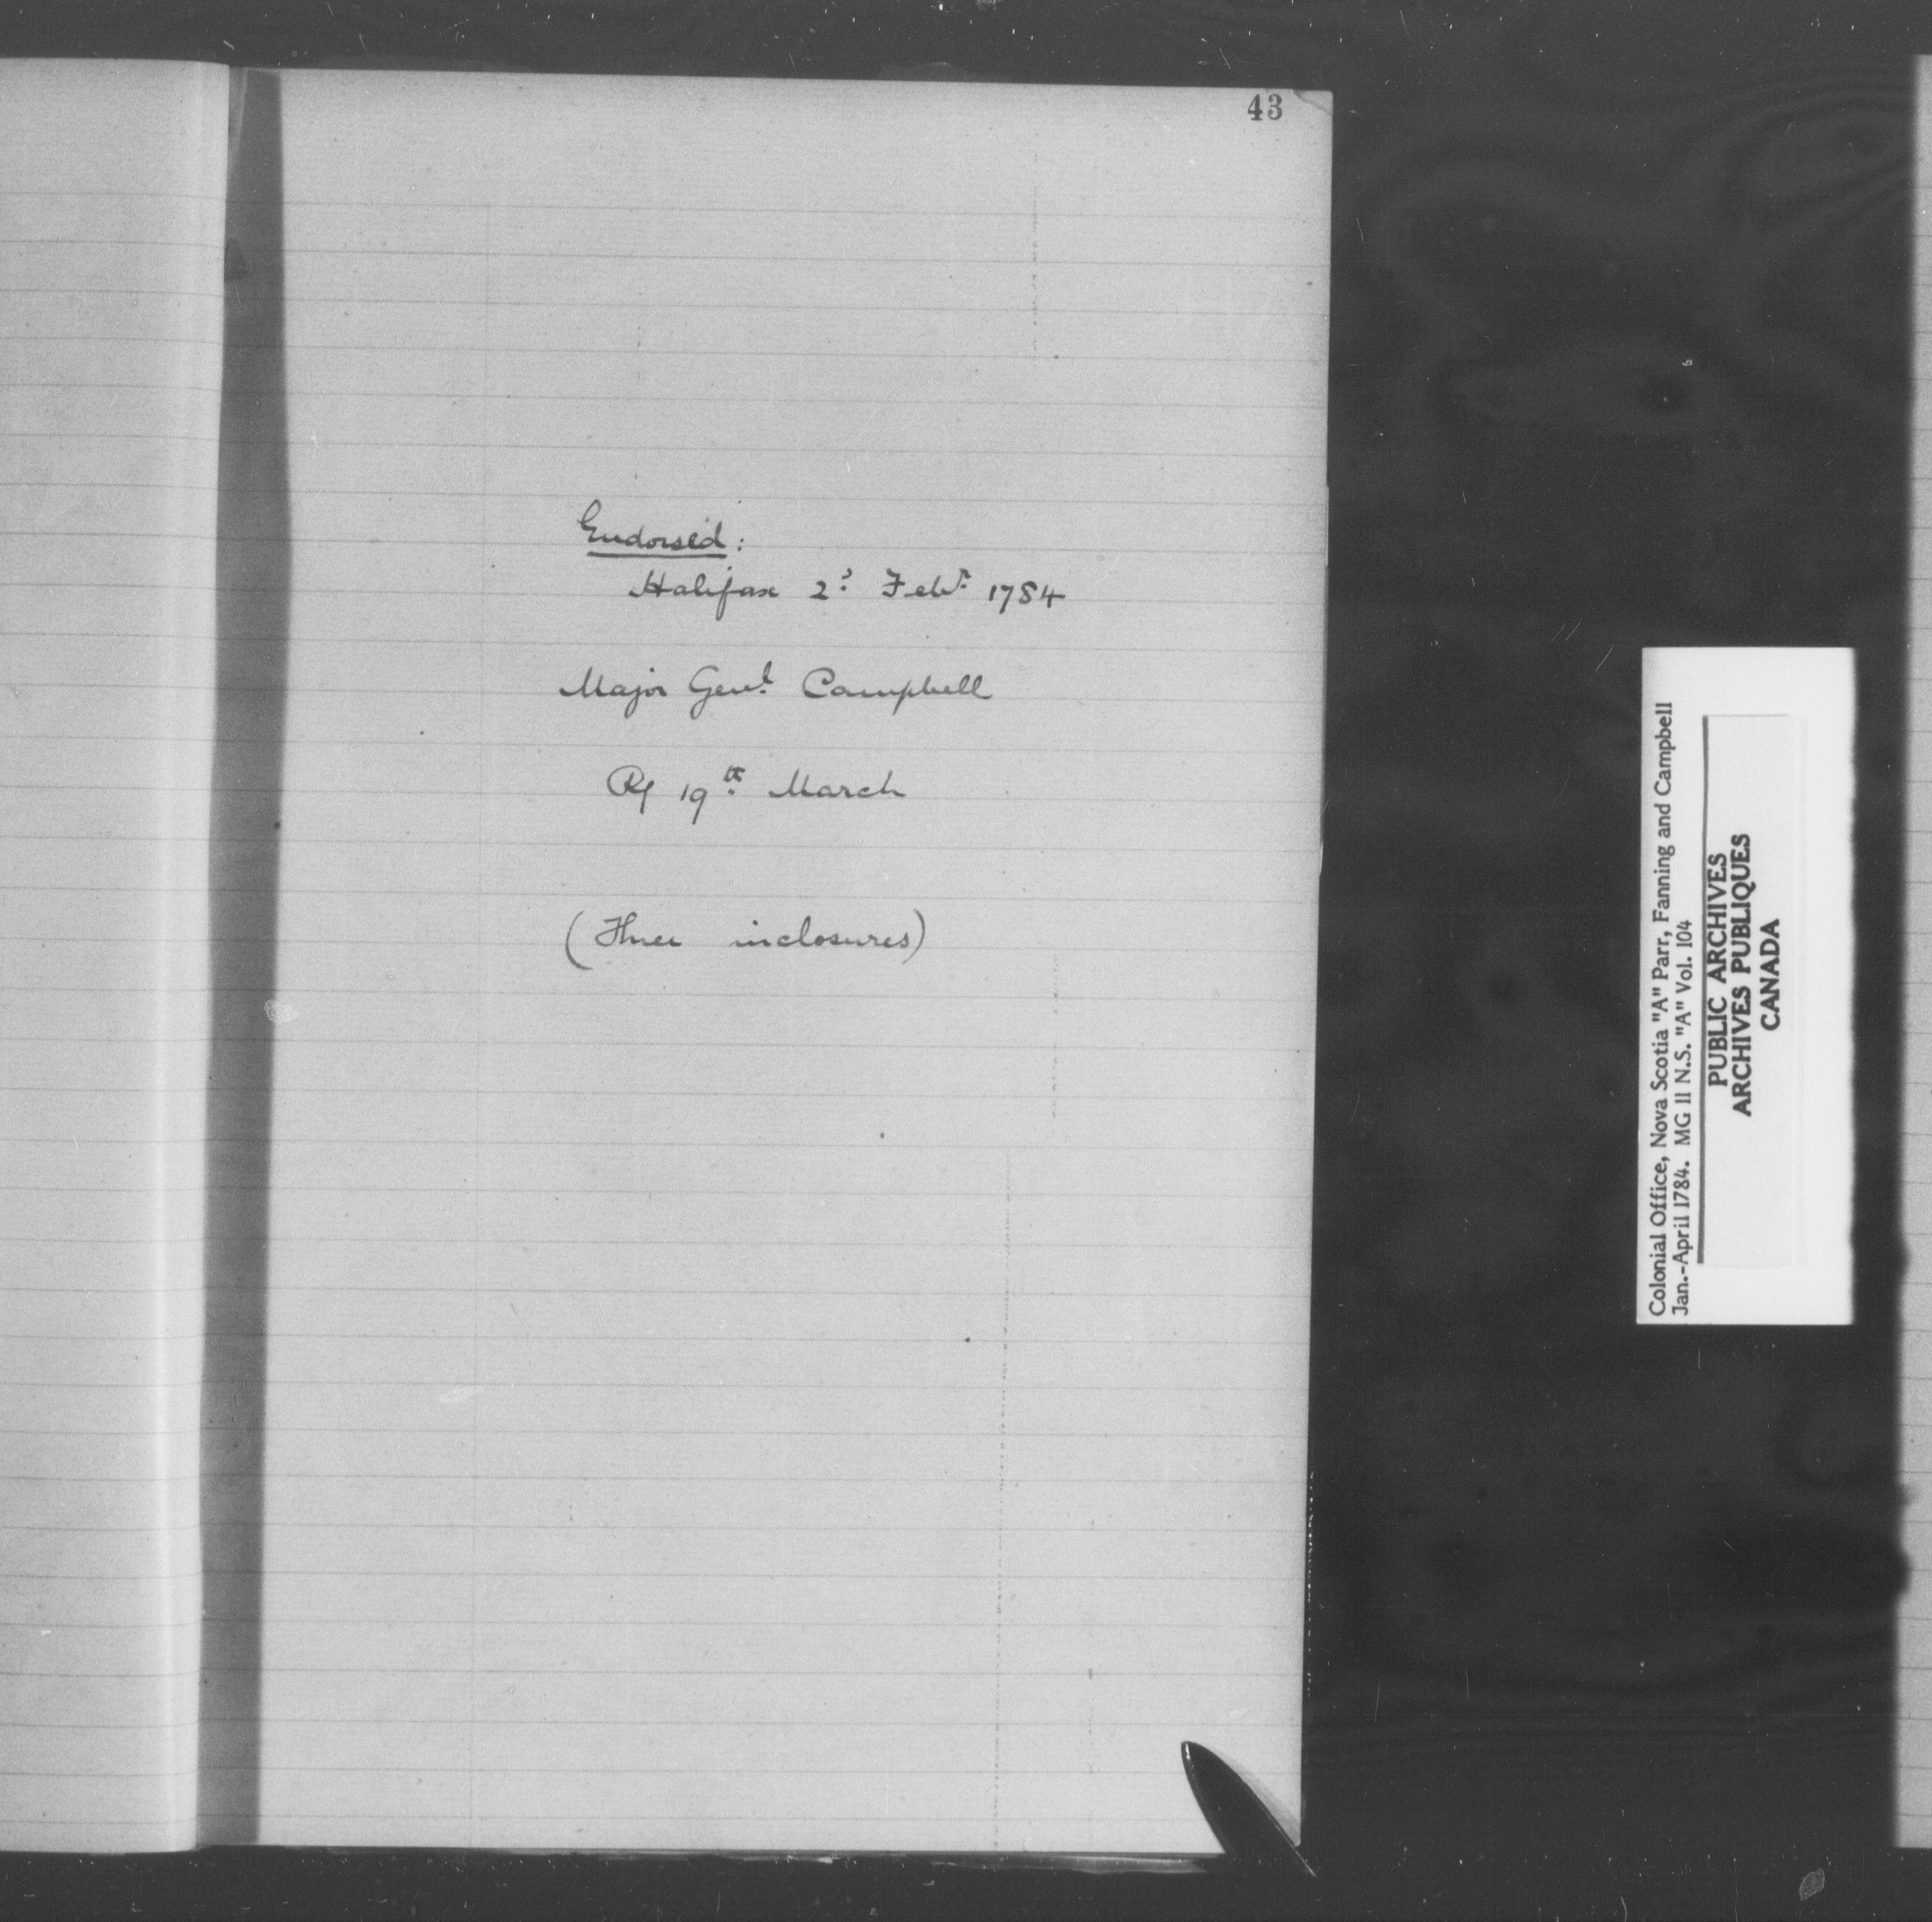 43
Endorsed:
Halifax 2d Febr 1784
Major Genl Campbell
R/ 19th March
(Three inclosures)
Colonial Office, Nova Scotia "A" Parr, Fanning and Campbell
Jan.-April 1784. MG 11 N.S. "A" Vol. 104
PUBLIC ARCHIVES
ARCHIVES PUBLIQUES
CANADA